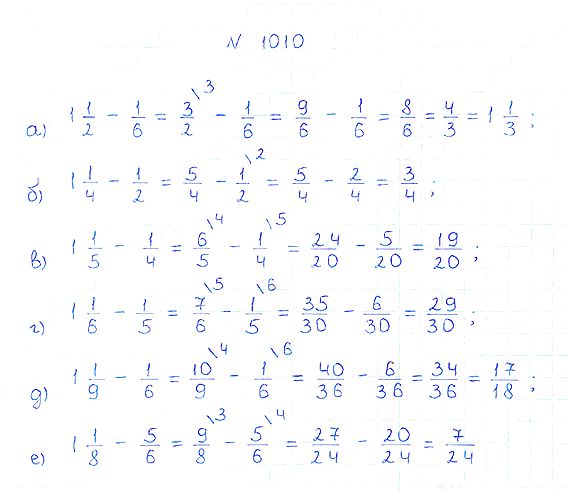 N 1010
а) 1 1/2 - 1/6 = 3/2 \3 - 1/6 = 9/6 - 1/6 = 8/6 = 4/3 = 1 1/3 ;
б) 1 1/4 - 1/2 = 5/4 - 1/2 \2 = 5/4 - 2/4 = 3/4 ;
в) 1 1/5 - 1/4 = 6/5 \4 - 1/4 \5 = 24/20 - 5/20 = 19/20 ;
г) 1 1/6 - 1/5 = 7/6 \5 - 1/5 \6 = 35/30 - 6/30 = 29/30 ;
д) 1 1/9 - 1/6 = 10/9 \4 - 1/6 \6 = 40/36 - 6/36 = 34/36 = 17/18 ;
е) 1 1/8 - 5/6 = 9/8 \3 - 5/6 \4 = 27/24 - 20/24 = 7/24